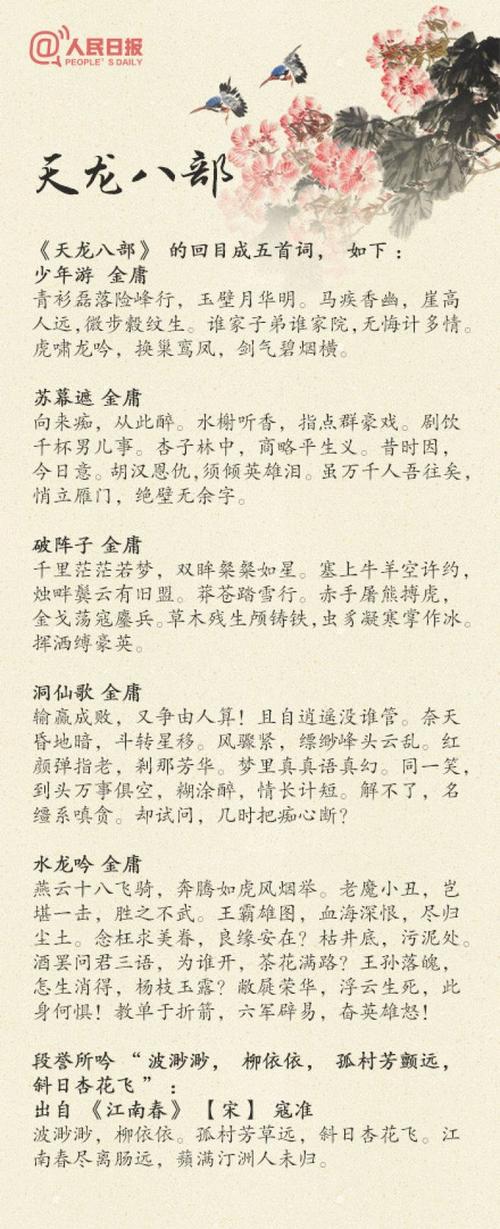 @人民日报
PEOPLE'S DAILY
天龙八部
《天龙八部》 的回目成五首词， 如下：
少年游 金庸
青衫磊落险峰行，玉壁月华明。马疾香幽，崖高
人远，微步縠纹生。谁家子弟谁家院，无悔计多情。
虎啸龙吟，换巢鸾凤，剑气碧烟横。
苏幕遮 金庸
向来痴，从此醉。水榭听香，指点群豪戏。剧饮
千杯男儿事。杏子林中，商略平生义。昔时因，
今日意。胡汉恩仇，须倾英雄泪。虽万千人吾往矣，
悄立雁门，绝壁无余字。
破阵子 金庸
千里茫茫若梦，双眸粲粲如星。塞上牛羊空许约，
烛畔鬓云有旧盟。莽苍踏雪行。赤手屠熊搏虎，
金戈荡寇鏖兵。草木残生颅铸铁，虫豸凝寒掌作冰。
挥洒缚豪英。
洞仙歌 金庸
输赢成败，又争由人算！且自逍遥没谁管。奈天
昏地暗，斗转星移。风骤紧，缥缈峰头云乱。红
颜弹指老，刹那芳华。梦里真真语真幻。同一笑，
到头万事俱空，糊涂醉，情长计短。解不了，名
缰系嗔贪。却试问，几时把痴心断？
水龙吟 金庸
燕云十八飞骑，奔腾如虎风烟举。老魔小丑，岂
堪一击，胜之不武。王霸雄图，血海深恨，尽归
尘土。念枉求美眷，良缘安在？枯井底，污泥处。
酒罢问君三语，为谁开，茶花满路？王孙落魄，
怎生消得，杨枝玉露？敝屣荣华，浮云生死，此
身何惧！教单于折箭，六军辟易，奋英雄怒！
段誉所吟 “波渺渺， 柳依依， 孤村芳颤远，
斜日杏花飞”：
出自 《江南春》 【宋】 寇准
波渺渺，柳依依。孤村芳草远，斜日杏花飞。江
南春尽离肠远，蘋满汀洲人未归。